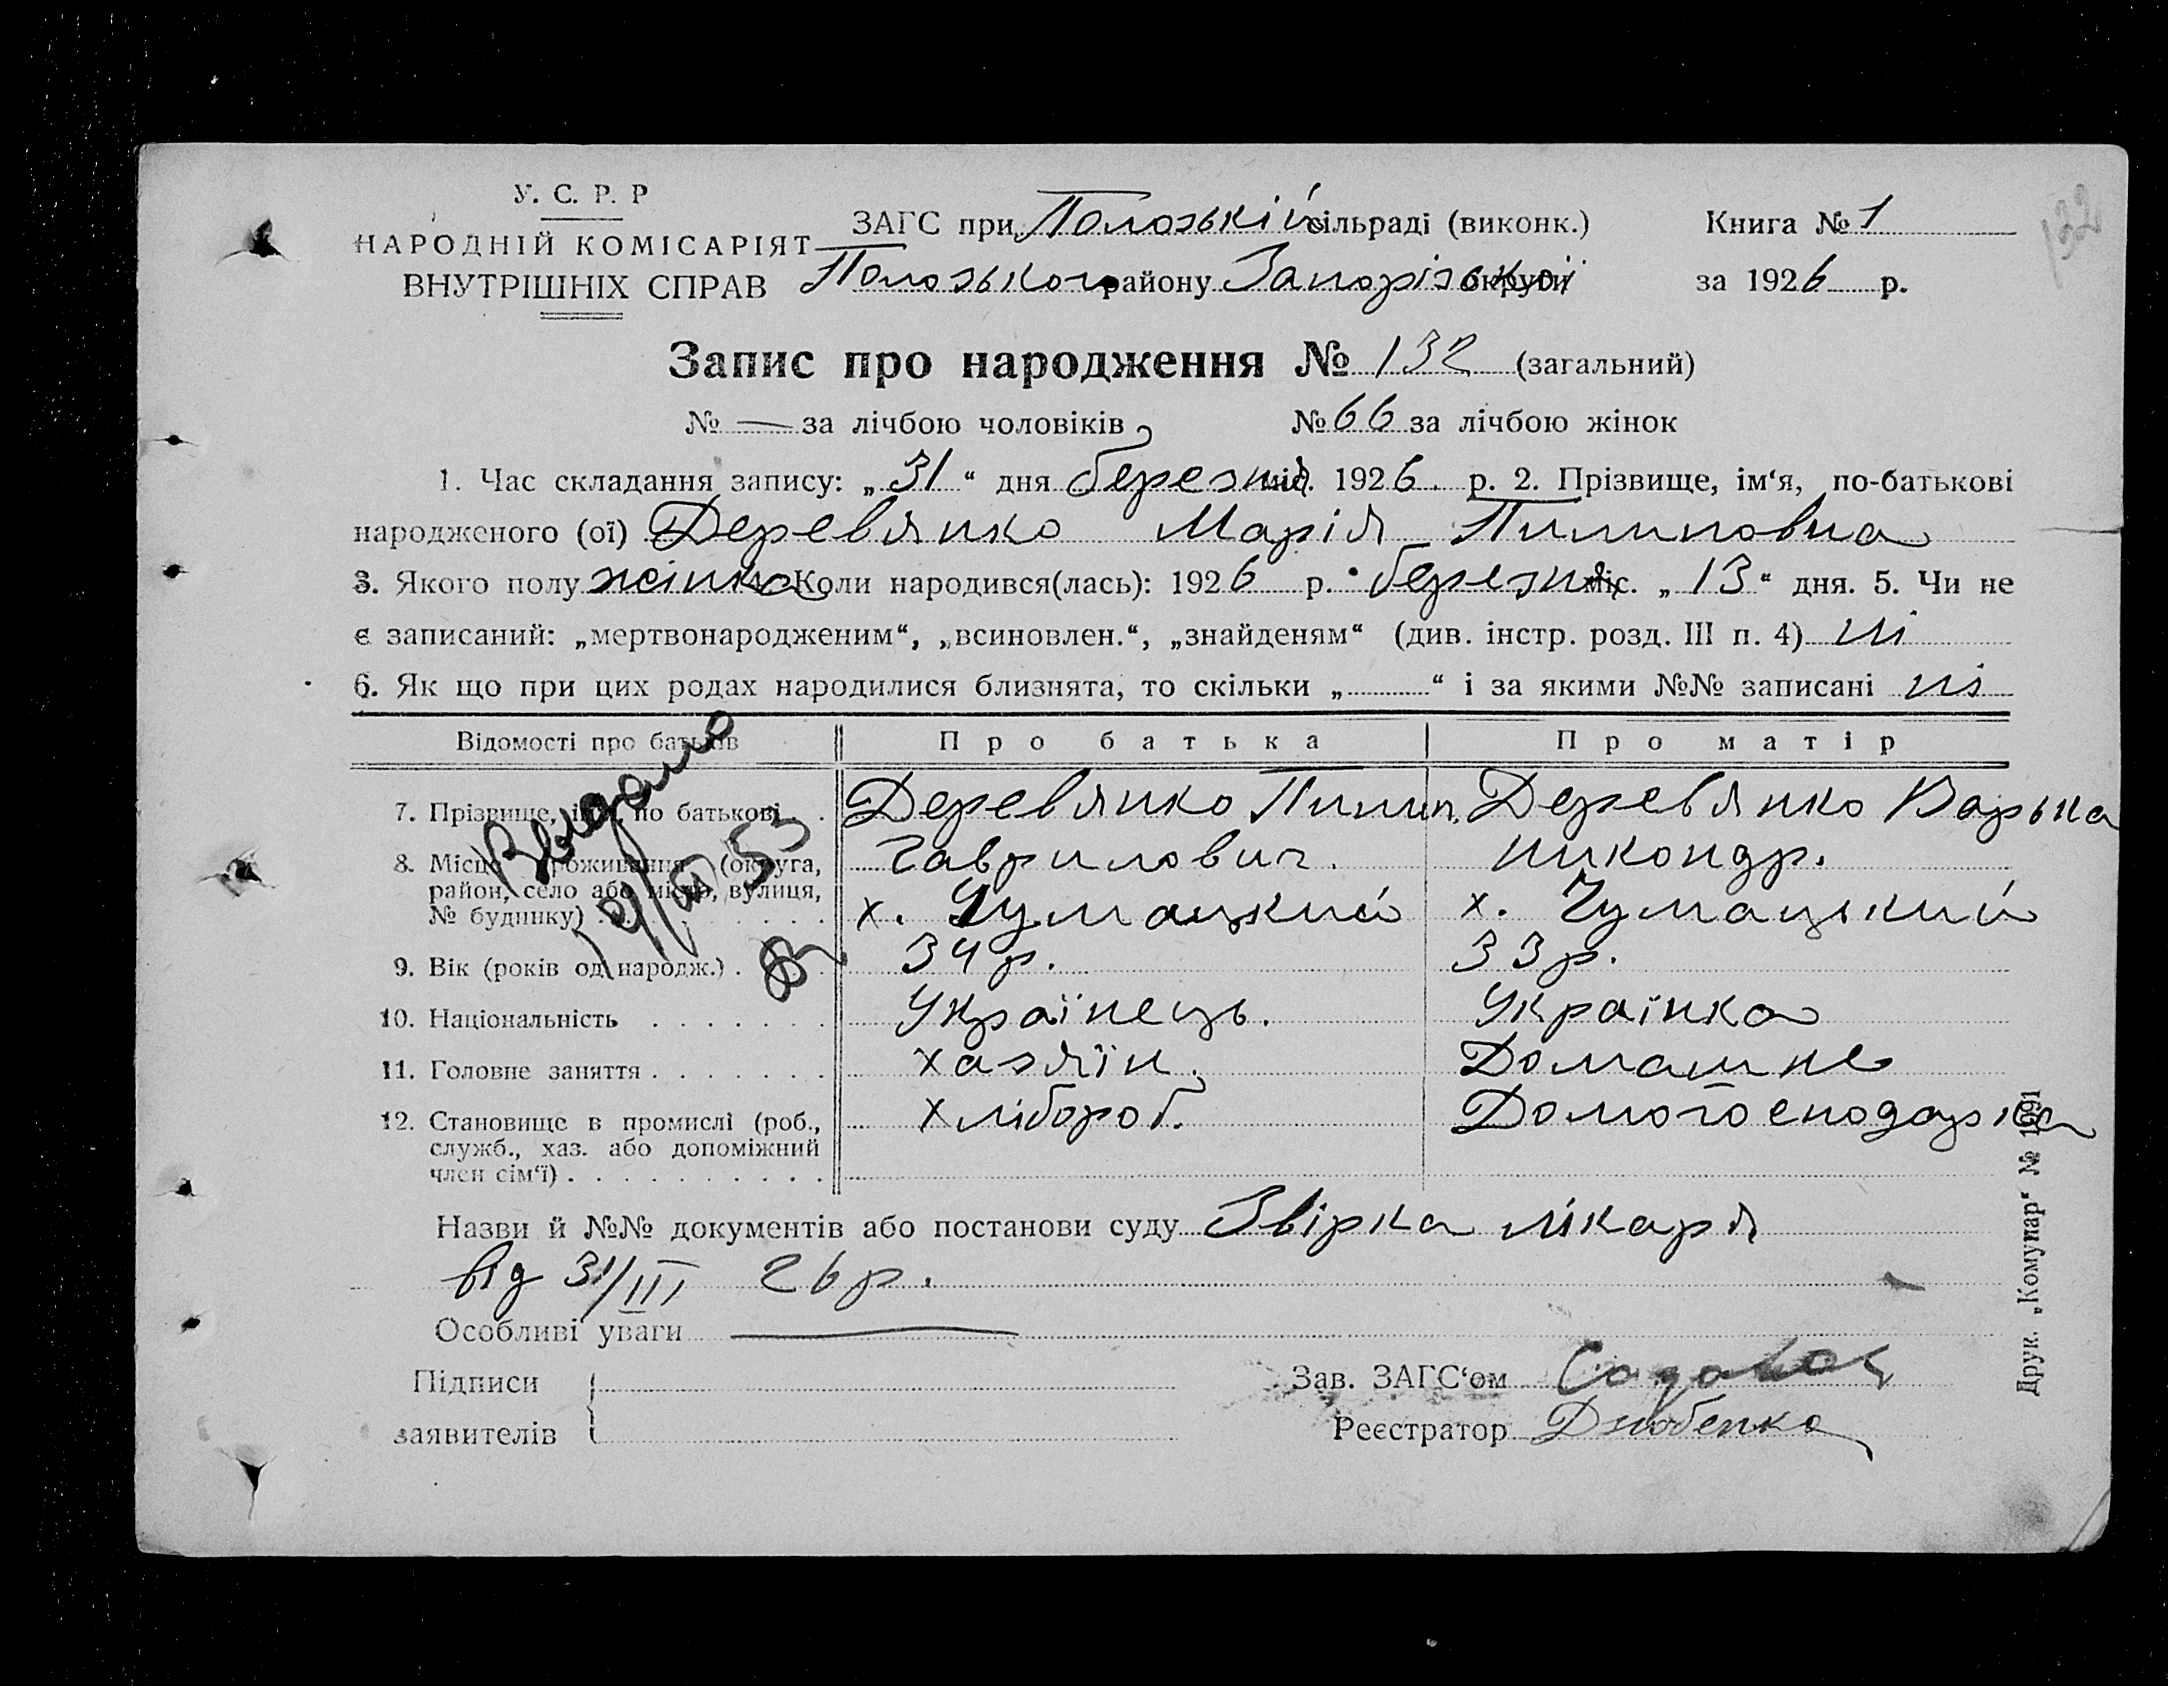 У. С. Р. Р
НАРОДНІЙ КОМІСАРІЯТ
ВНУТРІШНІХ СПРАВ
ЗАГС при Полозькій сільраді (виконк.)
Полозького району Запорізької округи
Книга № 1
за 1926 р.
132
Запис про народження № 132 (загальний)
№ — за лічбою чоловіків, № 66 за лічбою жінок
1. Час складання запису: „31“ дня березня міс. 1926 р. 2. Прізвище, ім‘я, по-батькові
народженого (ої) Деревянко Марія Пилиповна
3. Якого полу жінка 4. Коли народився(лась): 1926 р. березня міс. „13“ дня. 5. Чи не
є записаний: „мертвонародженим“, „всиновлен.“, „знайденям“ (див. інстр. розд. III п. 4) ні
6. Як що при цих родах народилися близнята, то скільки „ “ і за якими №№ записані ні
Відомості про батьків | Про батька | Про матір
7. Прізвище, ім‘я, по батькові . Деревянко Пилип. Деревянко Варька
Гаврилович. Никондр.
8. Місце проживання (округа,
район, село або місто, вулиця,
№ будинку) х. Чумацкий х. Чумацький
9. Вік (років од народж.) . 34 р. 33 р.
10. Національність Українець. Українка
11. Головне заняття хазяїн. Домашнє
12. Становище в промислі (роб.,
служб., хаз. або допоміжний
член сім‘ї) хлібороб. Домогосподарка
Выдано
19/III 53
Назви й №№ документів або постанови суду Звірка лікаря
від 31/III 26 р.
Особливі уваги —
Підписи
заявителів
Зав. ЗАГС‘ом
Реєстратор Дзюбенко
Друк. „Комунар“ № 1991